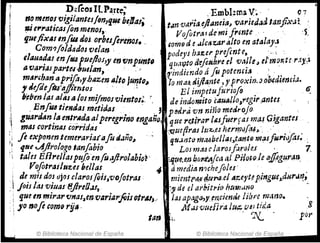 Diseos II. Parte;
no menos vigilantes son, que bellas;
ni erraticas son menos,
que fixas en sus dos orbes serenos.
Como soldados velan
elauados en su puesto, y en vn punto
a varias partes buelan,
marchan a prisa, y hazen alto junto,
y desde sus assientos
beben las alas a los mismos vientos.
En sus tiendas metidas
guardan la entrada al peregrino engaño,
mas cortinas corridas
se exponen temerarias a su daño,
que Astrologo tan sabio
tales Estrellas puso en su astrolabio?
Vosotras luzes bellas
de mis dos ojos claros sois, vosotras
sois las viuas Estrellas,
que en mirar vnas, en variar sois otras,
yo no se como rija
tan
Emblema V.
tan varia estancia, variedad tan fixa?
Vosotras de mi frente
como de alcazar alto en atalaya
podeys hazer presente,
quanto descubre el valle, el monte raya
rindiendo à su potencia
lo mas distante, y proximo obediencia.
El impetu furioso
de indomito cauallo, regir antes
podrà vn niño medroso
que retirar las fuerças mas Gigantes
vuestras luzes hermosas,
quanto mas bellas, tanto mas furiosas.
Los mas claros faroles
que en borrasca al Piloto le asseguran
à media noche soles
mientras dura el azeyte pingue, duran,
y de el arbitrio humano
las apaga, y enciende libre mano.
Mas vuestra luz vestida
por
© Biblioteca Nacional de España
© Biblioteca Nacional de España